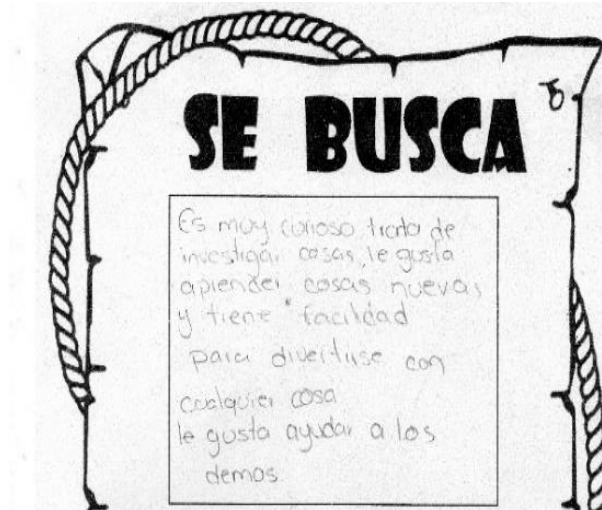 SE BUSCA
Es muy curioso, trata de
investigar cosas, le gusta
aprender cosas nuevas
y tiene facilidad
para divertirse con
cualquier cosa
le gusta ayudar a los
demas